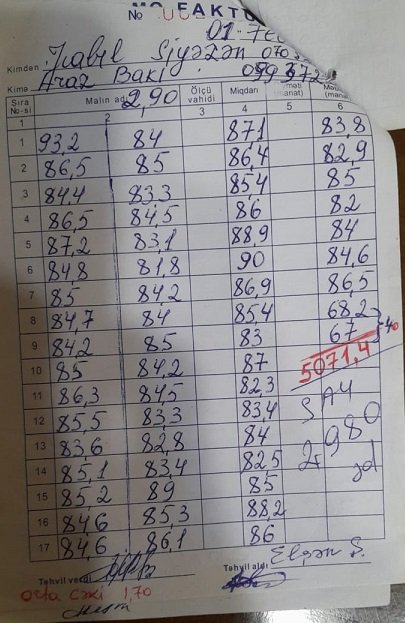 № FAKTU
01
Kimdən Siyəzən 070
Kimə Araz Bakı
2,90
Sıra No-si Malın ad Ölçü vahidi Miqdarı
1 2 3 4 5 6
1 93,2 84 87,1 83,8
2 86,5 85 86,4 82,9
3 84,4 83,3 85,4 85
4 86,5 84,5 86 82
5 87,2 83,1 88,9 84
6 84,8 81,8 90 84,6
7 85 84,2 86,9 86,5
8 84,7 84 85,4 68,2
9 84,2 85 83 67
10 85 84,2 87 5071,4
11 86,3 84,5 82,3
12 85,5 83,3 83,4
13 83,6 82,8 84 980
14 85,1 83,4 82,5
15 85,2 89 85
16 84,6 85,3 88,2
17 84,6 86,1 86
Təhvil verdi Təhvil aldı Elşən Ş.
orta çəki 1,70